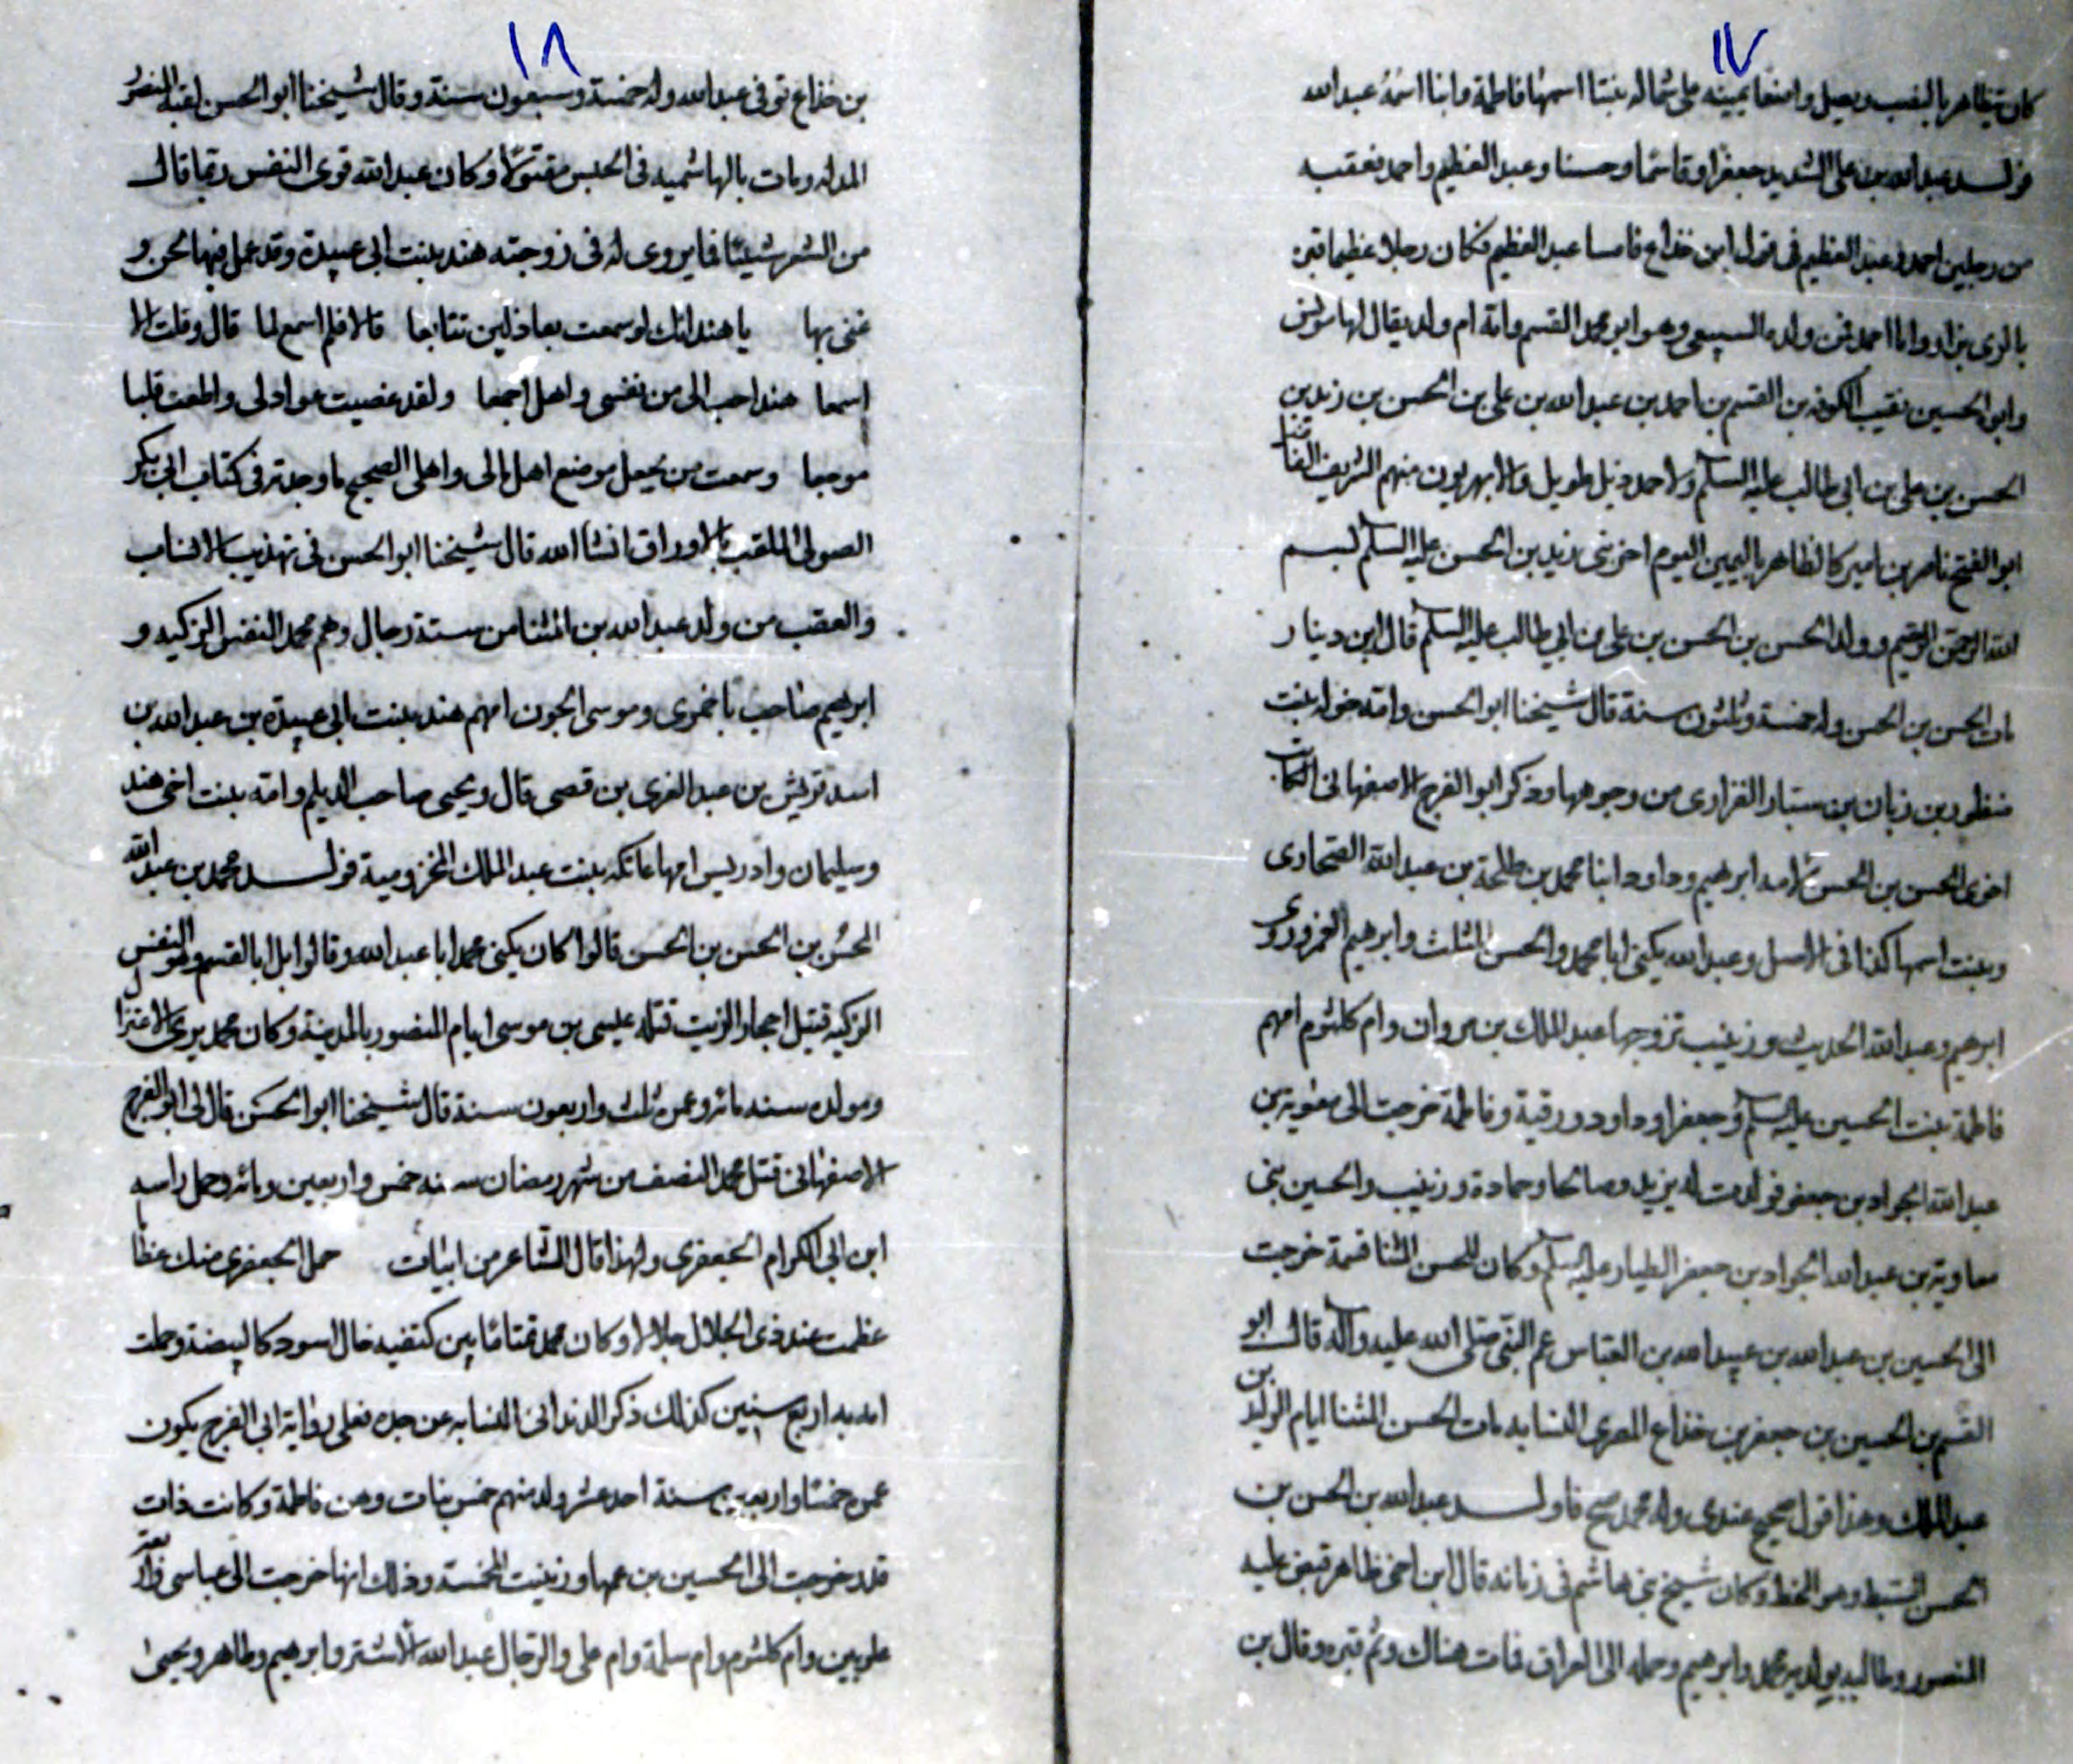 ١٧
كان يتظاهر بالنصب ويصلى واضعا يمينه على شماله بنتا اسمها فاطمة وابنا اسمه عبدالله
فولد عبدالله بن على الشديد جعفرا وقاسما وحسنا وعبد العظيم واحمد فعقبه
من رجلين احمد وعبد العظيم فى قول ابن خداع فاما عبد العظيم فكان رجلا عظيما قبره
بالرى يزار واما احمد فمن ولده السبيعى وهو ابو محمد القسم وامه ام ولد يقال لها
وابو الحسين نقيب الكوفه بن القسم بن احمد بن عبدالله بن على بن الحسن بن زيد بن
الحسن بن على بن ابى طالب عليه السلم ولاحمد ذيل طويل والابهريون منهم الشريف القاضى
ابو الفتح ناصر بن اميركا الظاهر باليمين اليوم اخر بنى زيد بن الحسن عليه السلم بسم
الله الرحمن الرحيم وولد الحسن بن الحسن بن على بن ابى طالب عليه السلم قال ابن دينار
مات الحسن بن الحسن وله خمسة وثلثون سنة قال شيخنا ابو الحسن وامه خوله بنت
منظور بن زبان بن سيار الفزارى من وجوهها وذكر ابو الفرج الاصفهانى الكاتب
اخوى الحسن بن الحسن لامه ابرهيم وداود ابنا محمد بن طلحة بن عبدالله الصحارى
وبنت اسمها كذا فى الاصل وعبدالله يكنى ابا محمد والحسن المثلث وابرهيم الغمر وروى
ابرهيم وعبدالله الحديث وزينب تزوجها عبد الملك بن مروان وام كلثوم امهم
فاطمة بنت الحسين عليه السلم وجعفرا وداود ورقية وفاطمة خرجت الى معوية بن
عبدالله الجواد بن جعفر فولدت له يزيد وصالحا وحمادة وزينب والحسين بنى
معاوية بن عبدالله الجواد بن جعفر الطيار عليه السلم وكان للحسن المثنا قسيمة خرجت
الى الحسين بن عبدالله بن عبيدالله بن العباس عم النبى صلى الله عليه وآله قال ابو
القسم بن الحسين بن جعفر بن خداع المصرى النسابه مات الحسن المثنا ايام الوليد بن
عبد الملك وهذا قول صحيح عندى وله محمد صح فاولد عبدالله بن الحسن بن
الحسن السبط وهو المحض وكان شيخ بنى هاشم فى زمانه قال ابن اخى طاهر قبض عليه
المنصور وطالبه بولديه محمد وابرهيم وحمله الى العراق فمات هناك وثم قبره وقال بن
١٨
بن خداع توفى عبدالله وله خمسة وسبعون سنة وقال شيخنا ابو الحسن لقبه النضر
المدله ومات بالهاشميه فى الحبس مقتولا وكان عبدالله قوى النفس ربما قال
من الشعر شيئا فما يروى له فى زوجته هند بنت ابى عبيدة وقد عمل فيها لحن و
غنى بها يا هند انك لو سمعت بعاذلين تتابعا قالا فلم اسمع لما قال وقلت الا
اسمعا هند احب الى من نفسى واهلى اجمعا ولقد عصيت عواذلى واطعت قلبا
موجعا وسمعت من يجعل موضع اهلى مالى واهلى الصحيح ما وجدته فى كتاب ابى بكر
الصولى الملقب بالاوراق انشا الله قال شيخنا ابو الحسن فى تهذيب الانساب
والعقب من ولد عبدالله بن المثنا من ستة رجال وهم محمد النفس الزكيه و
ابرهيم صاحب باخمرى وموسى الجون امهم هند بنت ابى عبيدة بن عبدالله بن
اسد قريش بن عبد العزى بن قصى قال ويحيى صاحب الديلم وامه بنت اخى هند
وسليمان وادريس امهما عاتكه بنت عبد الملك المخزومية فولد محمد بن عبدالله
المحض بن الحسن بن الحسن قالوا كان يكنى محمد ابا عبدالله وقالوا بل ابا القسم وهو النفس
الزكيه قتيل احجار الزيت قتله عيسى بن موسى ايام المنصور بالمدينة وكان محمد يرى الاعتزال
ومولده سنه مائه وعمره ثلث واربعون سنة قال شيخنا ابو الحسن قال لى ابو الفرج
الاصفهانى قتل محمد النصف من شهر رمضان سنه خمس واربعين ومائه وحمل راسه
ابن ابى الكرام الجعفرى ولهذا قال الشاعر من ابيات حمل الجعفرى منك عظا
عظمت عند ذى الجلال جلالا وكان محمد تمتاما بين كتفيه خال اسود كالبيضة وحملت
امه به اربع سنين كذلك ذكر الدندانى النسابه عن جده فعلى رواية ابى الفرج يكون
عمره خمسا واربعين سنة احد عشر ولد منهم خمس بنات وهن فاطمة وكانت ذات
قدر خرجت الى الحسين بن عمها وزينب الخمسة وذلك انها خرجت الى عباسى
علويين وام كلثوم وام سلمة وام على والرجال عبدالله الاشتر وابرهيم وطاهر ويحيى